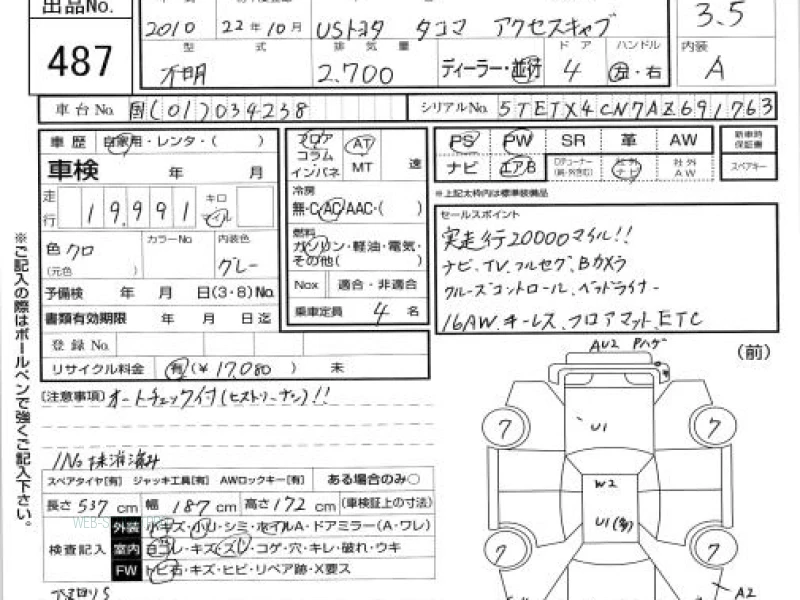 出品No.
487
2010 22年10月 USトヨタ タコマ アクセスキャブ
3.5
型 式 排気量 ドア ハンドル 内装
不明 2.700 ディーラー・並行 4 左・右 A
車台No. 国(01)034238 シリアルNo. 5TETX4CN7AZ691763
車歴 自家用・レンタ・( )
車検 年 月
走行 19,991 キロ マイル
色 クロ カラーNo 内装色 グレー
(元色 )
予備検 年 月 日(3・8)No.
書類有効期限 年 月 日迄
登録No.
リサイクル料金 有(¥17,080 ) 未
フロア コラム インパネ AT MT 速
冷房
無・C・AC・AAC・( )
燃料
ガソリン・軽油・電気・その他( )
Nox 適合・非適合
乗車定員 4 名
PS PW SR 革 AW 新車時保証書
ナビ エアB 社外ナビ 社外AW スペアキー
※上記太枠内は標準装備品
セールスポイント
実走行20000マイル!!
ナビ、TV、フルセグ、Bカメラ
クルーズコントロール、ベッドライナー
16AW、キーレス、フロアマット、ETC
※ご記入の際はボールペンで強くご記入下さい。
[注意事項] オートチェック付(ヒストリーナシ)!!
スペアタイヤ[有] ジャッキ工具[有] AWロックキー[有] ある場合のみ○
長さ 537 cm 幅 187 cm 高さ 172 cm (車検証上の寸法)
検査記入
外装 小キズ・小U・シミ・ホイルA・ドアミラー(A・ワレ)
室内 ヨゴレ・キズ・スレ・コゲ・穴・キレ・破れ・ウキ
FW トビ石・キズ・ヒビ・リペア跡・X要ス
AU2 Pハゲ
(前)
7 U1 7
W2
U1(多)
7 7
A2